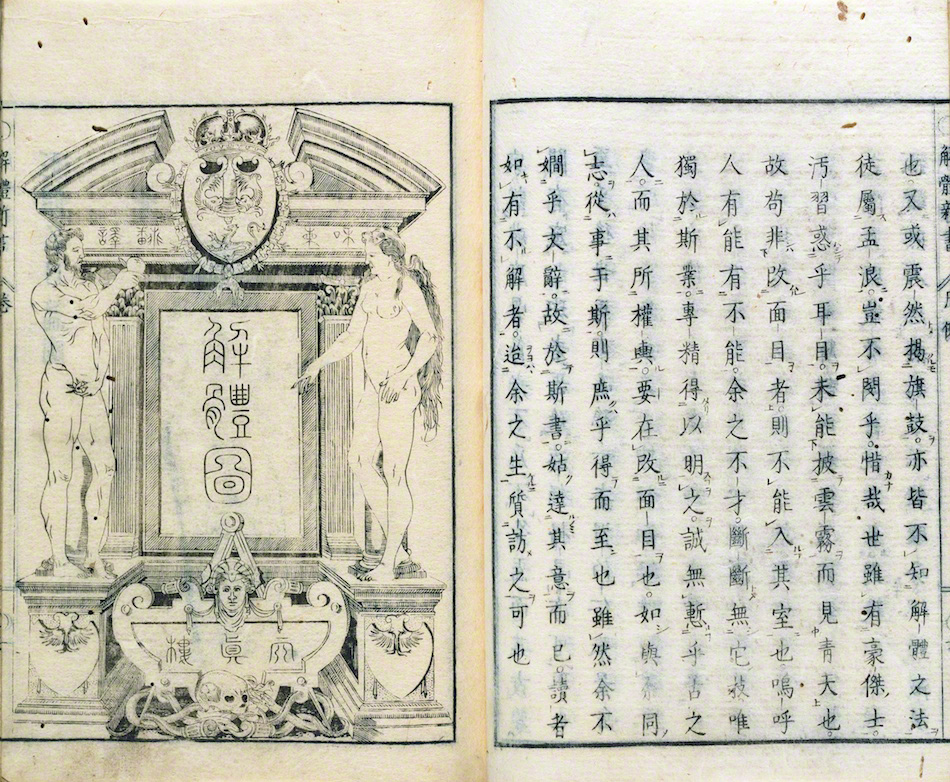 也又或震然揭旗鼓。亦皆不知解體之法
徒屬孟浪。豈不閔乎。惜哉世雖有豪傑士。
汚習惑乎耳目。未能披雲霧而見青天也。
故苟非改面目者。則不能入其室也嗚呼
人有能有不能。余之不才。斷斷無它技唯
獨於斯業。專精得以明之。誠無慙乎古之
人。而其所權輿。要在改面目也。如與余同
志。從事于斯。則庶乎得而至也雖然余不
嫺乎文辭。故於斯書。姑達其意而已。讀者
如有不解者。迨余之生質訪之可也
解體圖
天眞樓
解體新書 卷